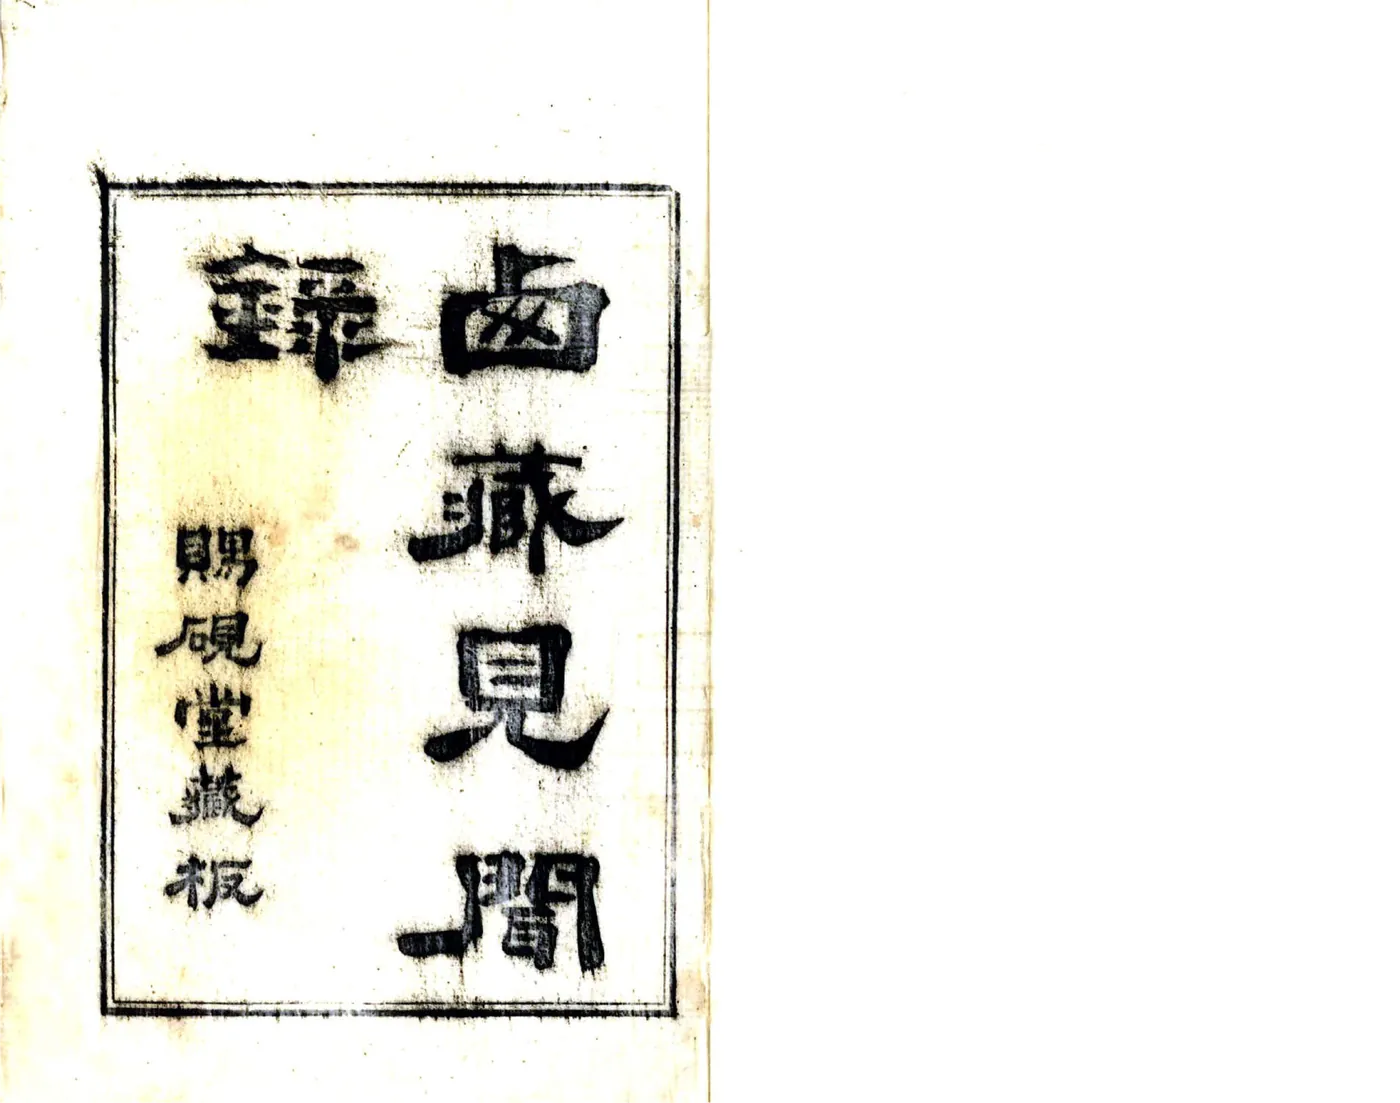 卥藏見聞
錄
賜硯堂藏板